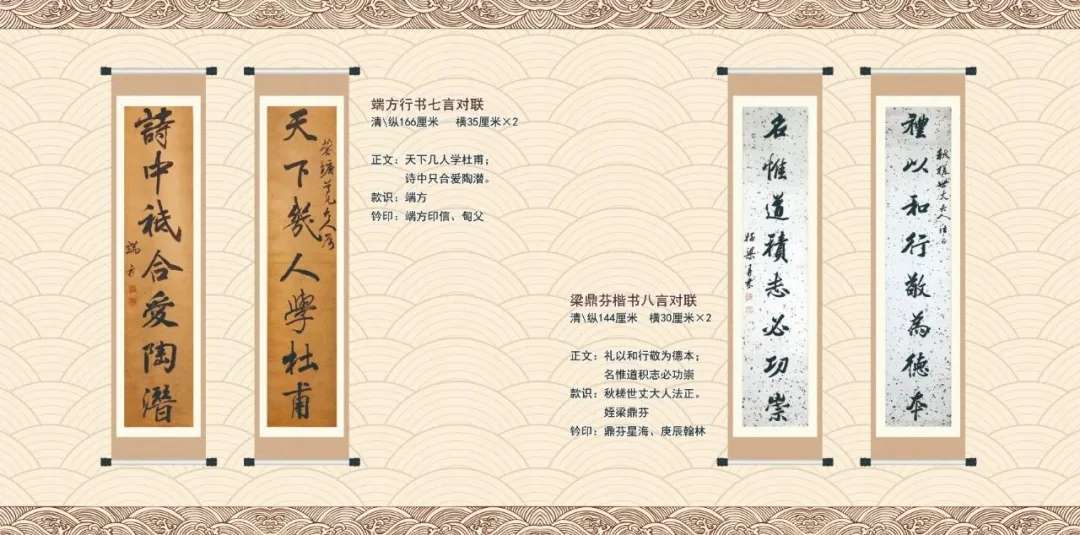 端方行书七言对联
清\纵166厘米 横35厘米×2
正文：天下几人学杜甫；
诗中只合爱陶潜。
款识：端方
钤印：端方印信、匋父
天下幾人學杜甫
詩中祗合愛陶潛
端方
梁鼎芬楷书八言对联
清\纵144厘米 横30厘米×2
正文：礼以和行敬为德本；
名惟道积志必功崇
款识：秋槎世丈大人法正。
姪梁鼎芬
钤印：鼎芬星海、庚辰翰林
禮以和行敬為德本
秋槎世丈大人法正
名惟道積志必功崇
姪梁鼎芬